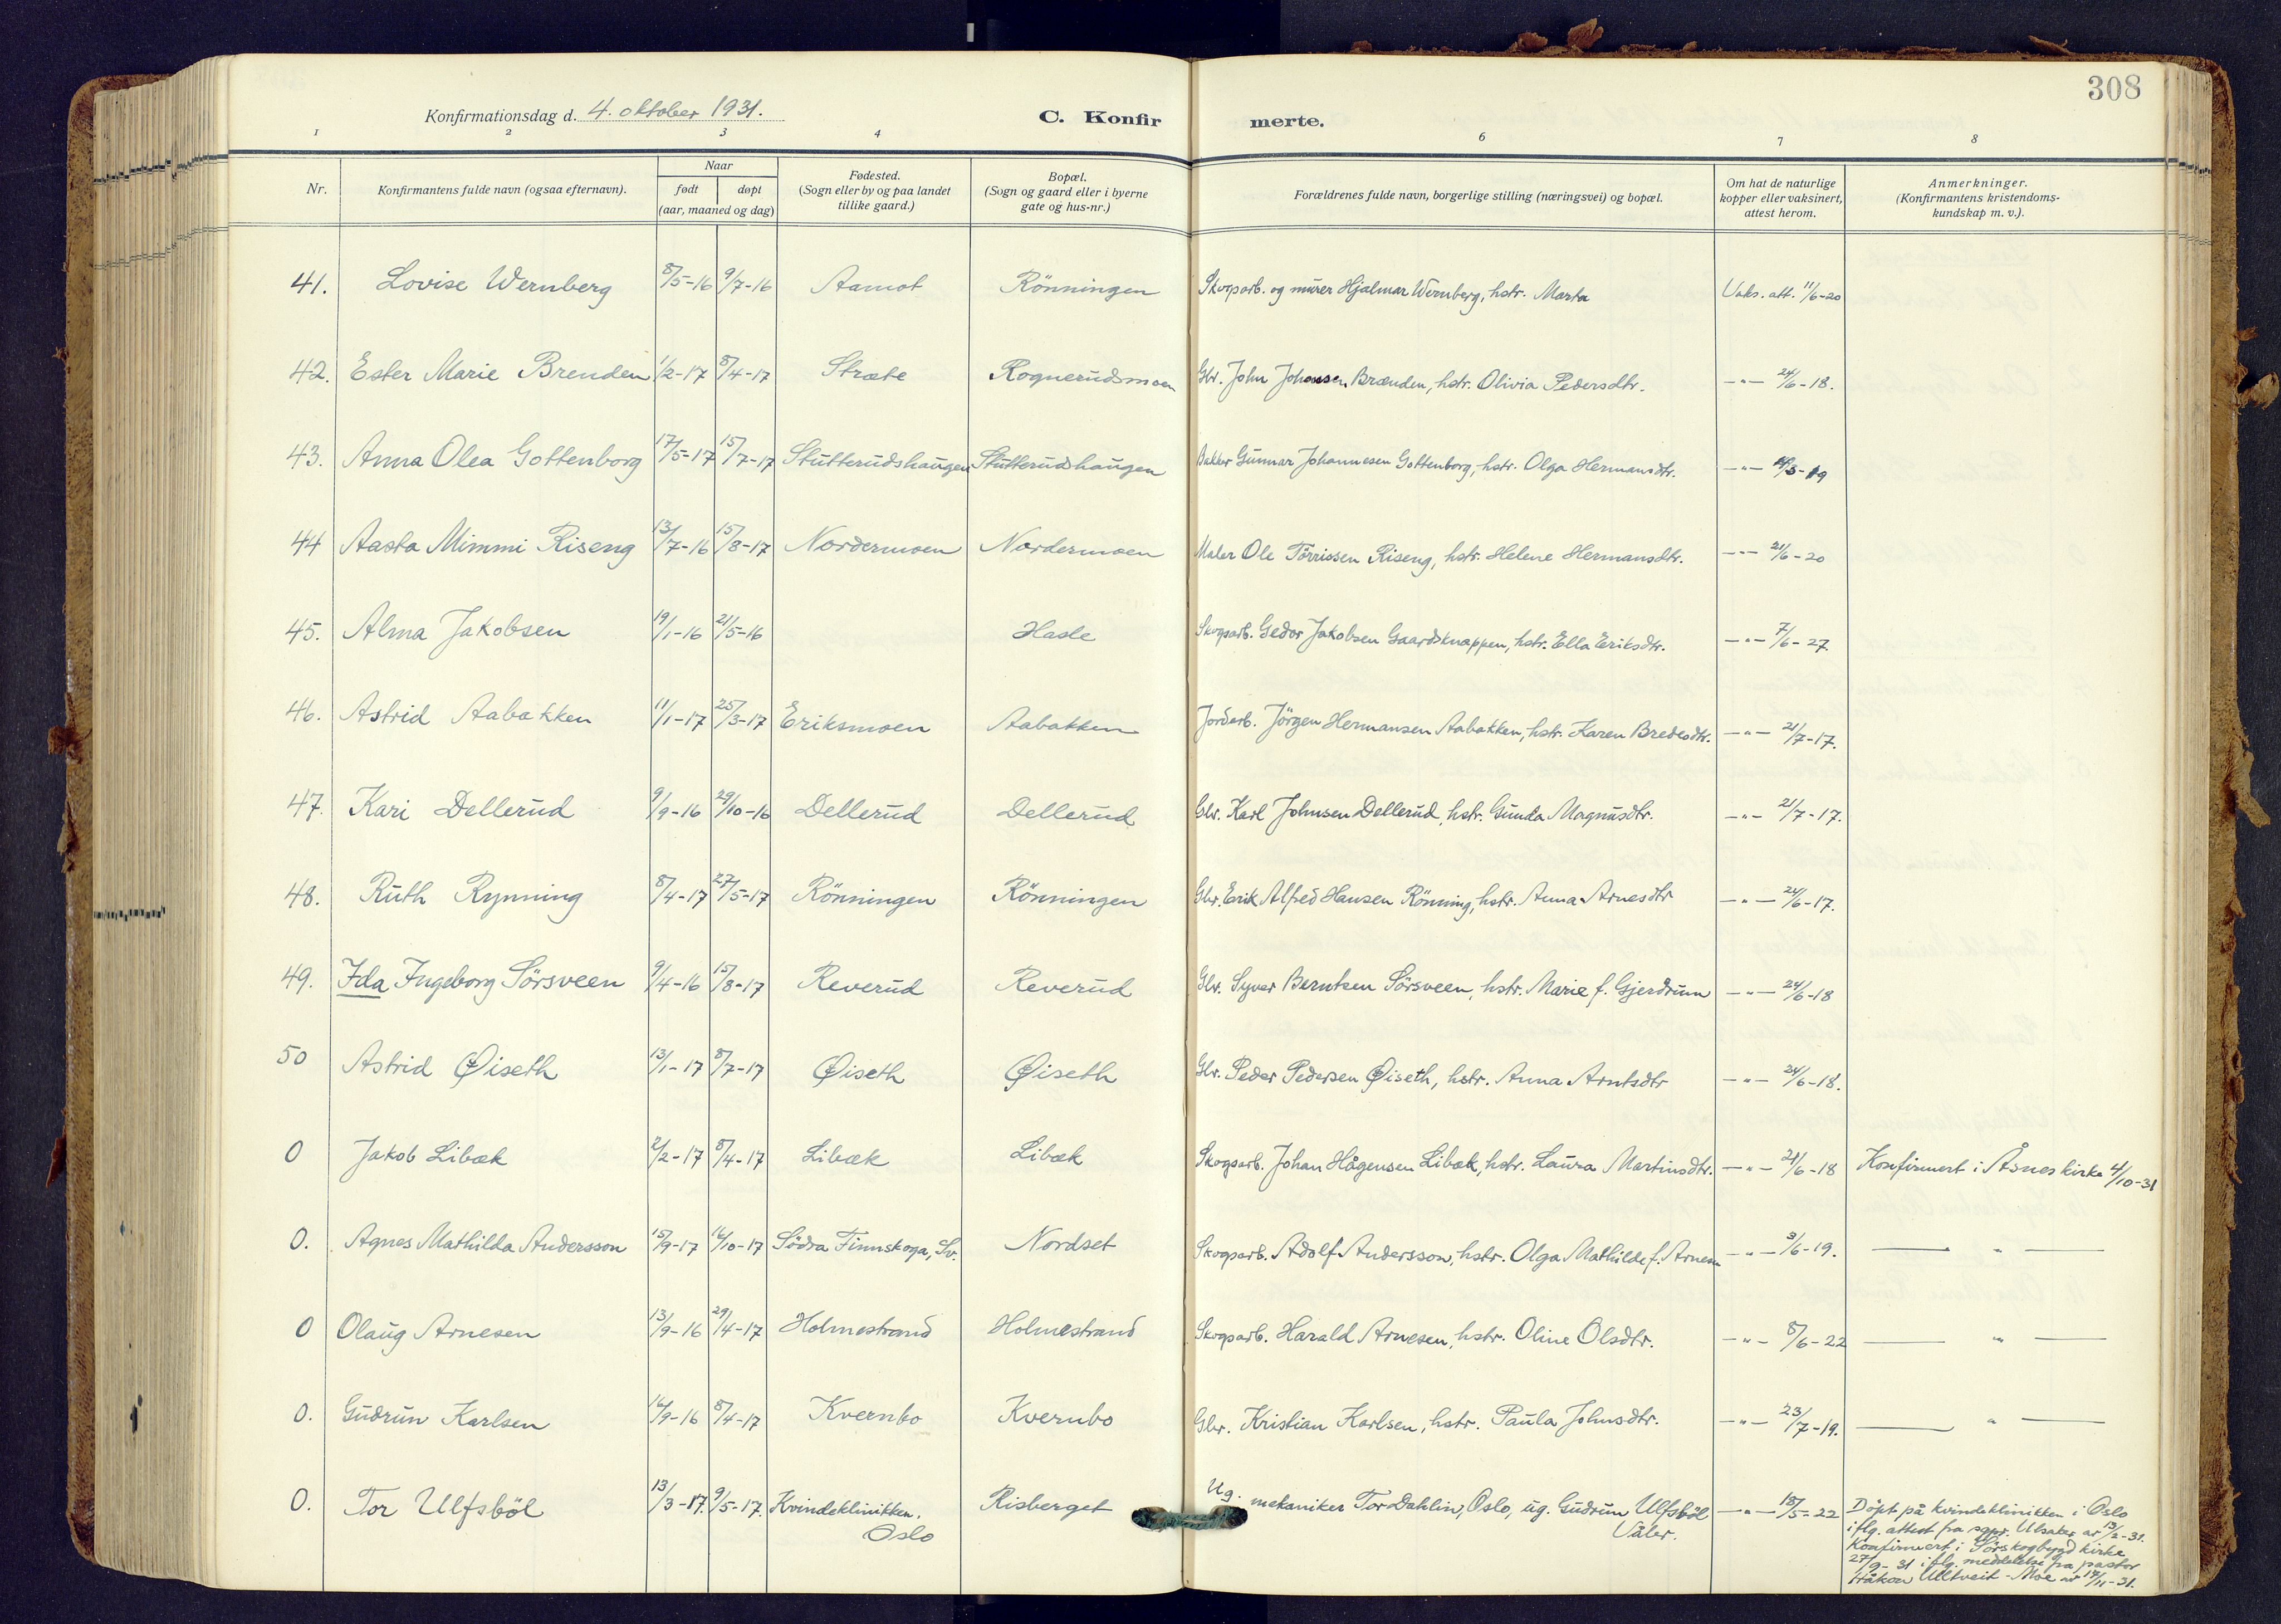 308
Konfirmationsdag d. 4. oktober 1931. C. Konfirmerte.
1 2 3 4 6 7 8
Nr. Konfirmantens fulde navn (ogsaa efternavn). Naar født døpt (aar, maaned og dag) Fødested. (Sogn eller by og paa landet tillike gaard.) Bopæl. (Sogn og gaard eller i byerne gate og hus-nr.) Forældrenes fulde navn, borgerlige stilling (næringsvei) og bopæl. Om hat de naturlige kopper eller vaksinert, attest herom. Anmerkninger. (Konfirmantens kristendoms-kundskap m. v.).
41. Lovise Wernberg 8/5-16 9/7-16 Aamot Rönningen Skogsarb. og murer Hjalmar Wernberg, hstr. Marta Vaks. att. 11/6-20
42. Ester Marie Brenden 1/2-17 8/4-17 Stræte Rognerudsmoen Gbr. John Johansen Brænden, hstr. Olivia Pedersdtr. -"- 24/6-18.
43. Anna Olea Gottenborg 17/5-17 15/7-17 Stutterudshaugen Stutterudshaugen Bakker Gunnar Johannesen Gottenborg, hstr. Olga Hermansdtr. -"-
44 Aasta Mimmi Riseng 13/7-16 15/8-17 Nordermoen Nordermoen Maler Ole Törrissen Riseng, hstr. Helene Hermansdtr. -"- 21/6-20
45. Alma Jakobsen 19/1-16 21/5-16 Hasle Skogsarb. Gedor Jakobsen Gaardsknappen, hstr. Ella Eriksdtr. -"- 7/6-27
46. Astrid Aabakken 11/1-17 25/3-17 Eriksmoen Aabakken Jordarb. Jörgen Hermansen Aabakken, hstr. Karen Bredesdtr. -"- 21/7-17.
47. Kari Dellerud 9/9-16 29/10-16 Dellerud Dellerud Gbr. Karl Johnsen Dellerud, hstr. Gunda Magnusdtr. -"- 21/7-17.
48. Ruth Rynning 8/4-17 27/5-17 Rönningen Rönningen Gbr. Erik Alfred Hansen Rönning, hstr. Anna Arnesdtr -"- 24/6-17.
49. Ida Ingeborg Sörsveen 9/4-16 15/8-17 Reverud Reverud Gbr. Syver Berntsen Sörsveen, hstr. Marie f. Gjerdrum -"- 24/6-18
50 Astrid Øiseth 13/1-17 8/7-17 Øiseth Øiseth Gbr. Peder Pedersen Øiseth, hstr. Anna Arntsdtr -"- 24/6-18.
0 Jakob Libæk 2/2-17 8/4-17 Libæk Libæk Skogsarb. Johan Hågensen Libæk, hstr. Laura Martinsdtr. -"- 21/6-18 Konfirmert i Åsnes kirke 4/10-31
0. Agnes Mathilda Andersson 15/9-17 16/10-17 Södra Finnskoga, Sv. Nordset Skogsarb. Adolf Andersson, hstr. Olga Mathilde f. Arnesen -"- 3/6-19. — " —
0 Olaug Arnesen 13/9-16 29/4-17 Holmestrand Holmestrand Skogsarb. Harald Arnesen, hstr. Oline Olsdtr. -"- 8/6-22 — " —
0. Gudrun Karlsen 16/9-16 8/4-17 Kvernbo Kvernbo Gbr. Kristian Karlsen, hstr. Paula Johnsdtr. -"- 23/7-19. — " —
0. Tor Ulfsböl 13/3-17. 9/5-17. Kvindeklinikken. Risberget Ug. mekaniker Tor Dahlin, Oslo, ug. Gudrun Ulfsböl -"- 18/5-22 Döpt på kvindeklinikken i Oslo
Oslo Våler. iflg. attest fra sgpr. Ulsaker av 13/2-31.
Konfirmert i Sörskogbygd kirke
27/9-31 iflg. meddelelse fra pastor
Håkon Ulltveit-Moe av 17/11-31.